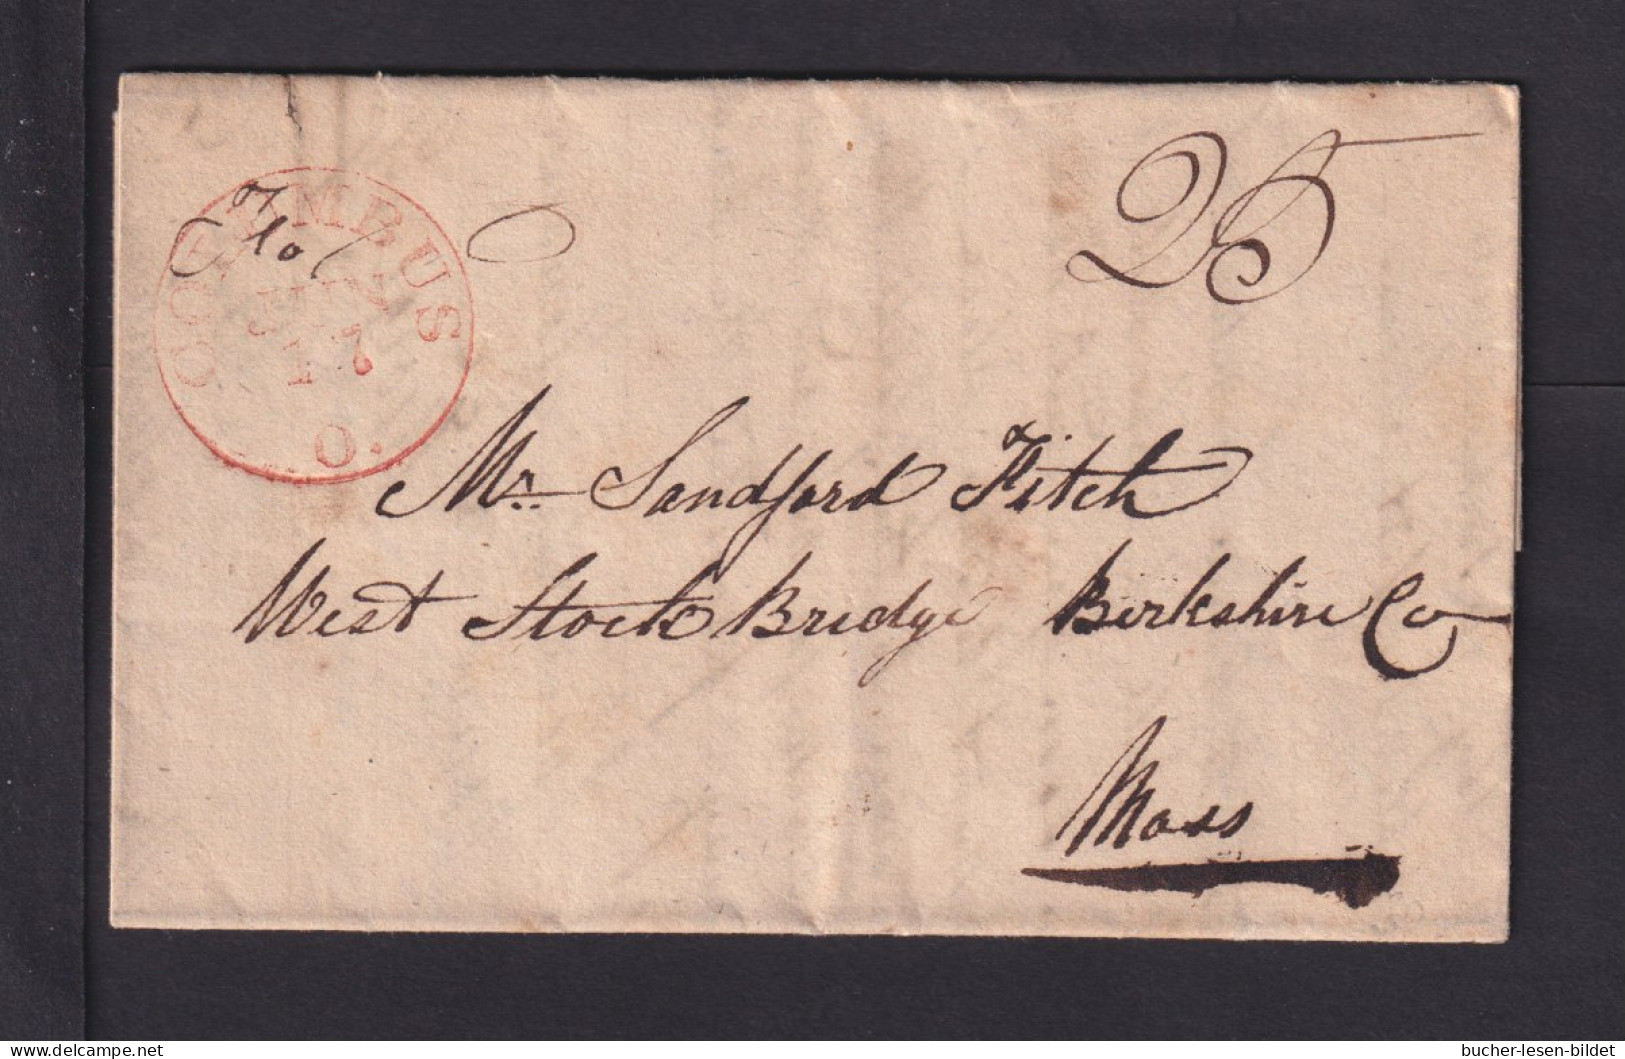 25
COLUMBUS
17
O.
Mr. Sandford Fitch
West Stock Bridge Berkshire Co
Mass
delcampe.net
bucher-lesen-bildet